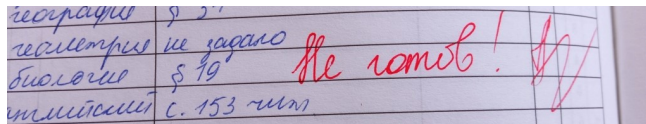 география § 3
геометрия не задало
биология § 19
Не готов!
английский с. 153 чит